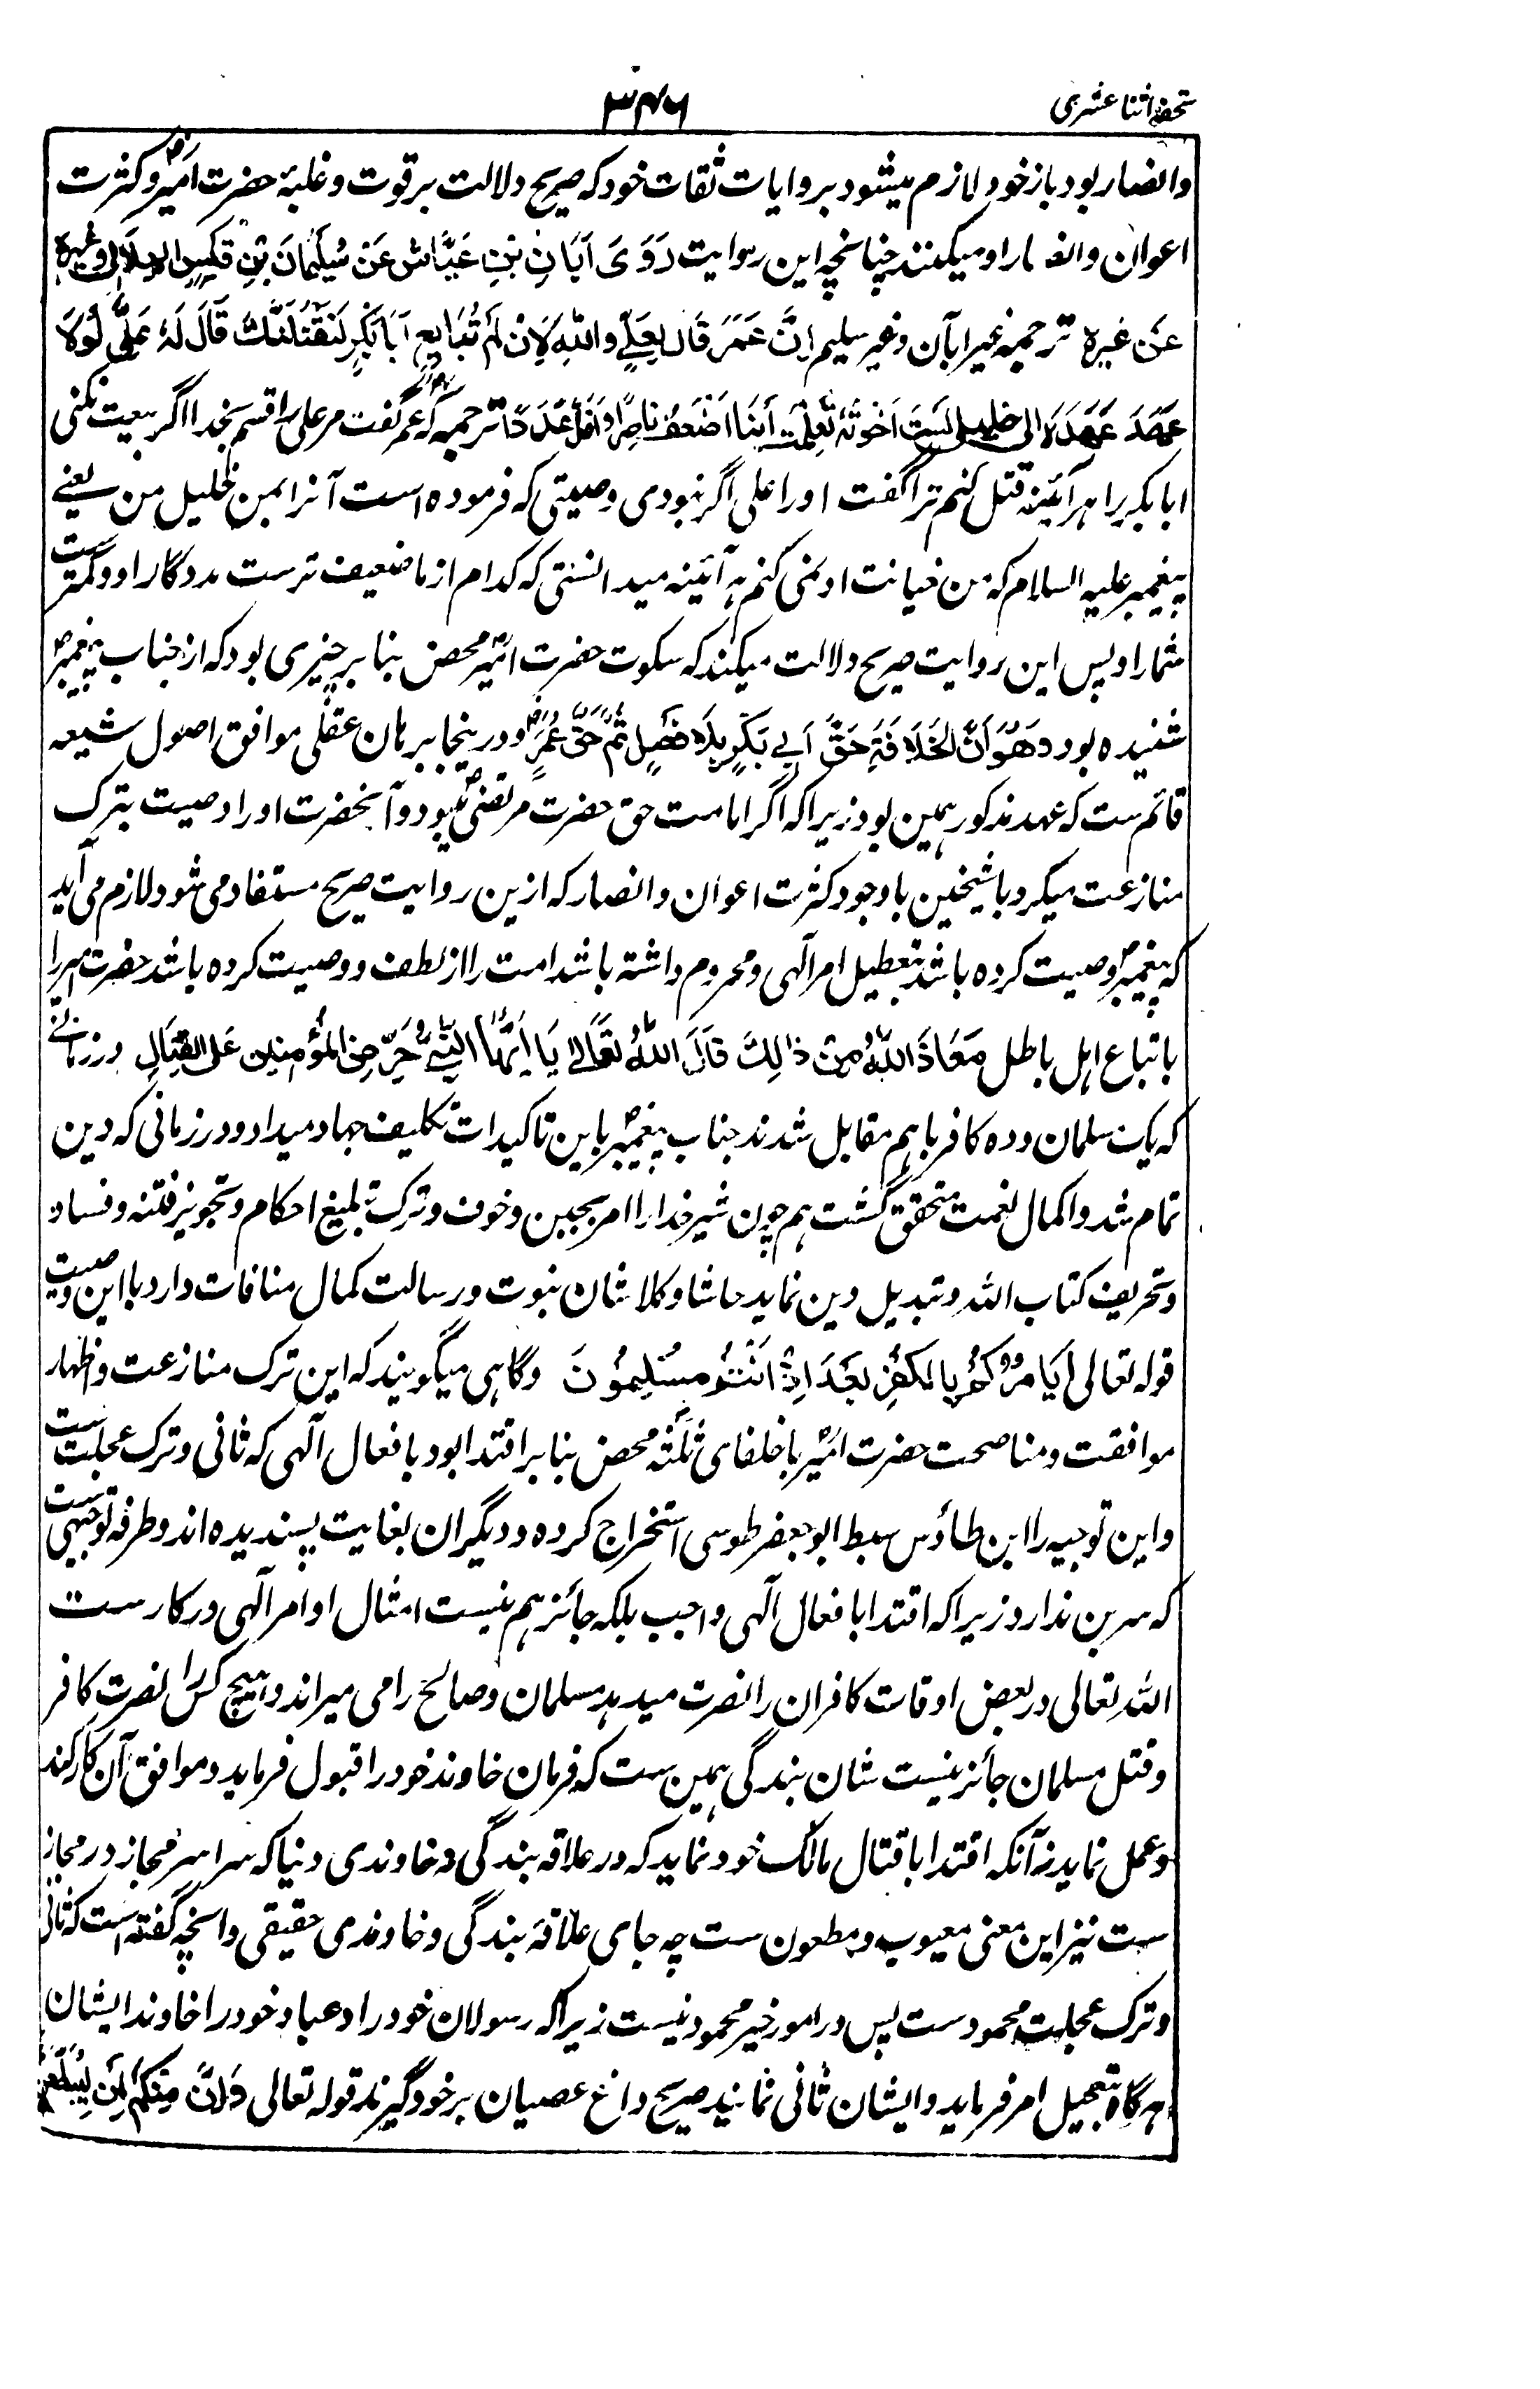 تحفہ اثنا عشری
۳۴۶
وانصار بود باز خود لازم میشود بروایات ثقات خود که صریح دلالت بر قوت وغلبۂ حضرت امیرؓ وکثرت
اعوان وانصار او میکنند چنانچہ این روایت رَوَیَ اَبَانِ بْنِ عَیَّاشْ عَنْ سُلَیْمَانَ بْنِ قَیسِ الهِلَالِی وغیرہ
عَنْ غَیرِہ ترجمہ غیر ابآن وغیر سلیم اِنَّ عُمَرَ قَالَ لِعَلِیٍّ وَاللہِ لَاِنْ لَمْ تُبَایِعْ اَبَا بَکْرٍ لَنَقْتُلَنَّكَ قَالَ لَهٗ عَلِیٌّ لَوْلَا
عَهْدٌ عَهِدَهٗ اِلی خلیلی لَسْتُ اَخُونُهٗ لَعَلِمْتَ اَیُّنَا اَضْعَفُ نَاصِرًا وَاَقَلُّ عَدَدًا ترجمہ کہ عمرؓ گفت مر علی را قسم بخدا اگر بیعت نکنی
ابابکر را ہر آئینہ قتل کنم ترا گفت اورا علی اگر نبودی وصیتی کہ فرموده است آنرا بمن خلیل من یعنے
پیغمبر علیہ السلام کہ من خیانت او نمی کنم ہر آئینہ میدانستی کہ کدام از ما ضعیف ترست مددگار او وکمترست
شمار او پس این روایت صریح دلالت میکند کہ سکوت حضرت امیرؓ محض بنا بر چیزی بود کہ از جناب پیغمبرؐ
شنیده بود وَهُوَ اَنَّ الخِلَافَةَ حَقُّ اَبِی بَکْرٍ بِلَا فَصْلٍ ثُمَّ حَقُّ عُمَرَ ودرینجا برہان عقلی موافق اصول شیعہ
قائم ست کہ عہد مذکور ہمین بود زیرا کہ اگر امامت حق حضرت مرتضیؓ میبود وآنحضرت اورا وصیت بترک
منازعت میکرد با شیخین باوجود کثرت اعوان وانصار کہ ازین روایت صریح مستفاد می شود لازم می آید
کہ پیغمبرؐ وصیت کرده باشد بتعطیل امر آلہی ومحروم داشتہ باشد امت را از لطف ووصیت کرده باشد حضرت امیر را
باتباع اہل باطل مَعَاذَ اللهِ مِنْ ذٰلِكَ قَالَ اللهُ تَعَالٰی یَا اَیُّهَا النَّبِیُّ حَرِّضِ المُؤْمِنِینَ عَلَی القِتَالِ در زمانے
کہ یک مسلمان وده کافر باہم مقابل شدند جناب پیغمبرؐ باین تاکیدات تکلیف جہاد میداد ودر زمانی کہ دین
تمام شد واکمال نعمت متحقق گشت ہم چون شیر خدا را امر بجبن وخوف وترک تبلیغ احکام وتجویز فتنہ وفساد
وتحریف کتاب اللہ وتبدیل دین نماید حاشا وکلا شان نبوت ورسالت کمال منافات دارد با این وصیت
قولہ تعالی اَیَأمُرُکُمْ بِالکُفْرِ بَعْدَ اِذْ اَنْتُمْ مُسْلِمُوْنَ وگاہی میگویند کہ این ترک منازعت واظہار
موافقت ومناصحت حضرت امیرؓ با خلفای ثلثہ محض بنا بر اقتدا بود بافعال آلہی کہ تانی وترک عجلت ست
واین توجیہ را ابن طاؤس سبط ابو جعفر طوسی استخراج کرده ودیگران بغایت پسندیده اند وطرفہ توجیہی ست
کہ سر وبن ندارد زیرا کہ اقتدا بافعال آلہی واجب بلکہ جائز ہم نیست امتثال اوامر آلہی درکار ست
اللہ تعالی در بعض اوقات کافران را نصرت میدہد مسلمان وصالح را می میراند وہیچ کس را نصرت کافر
وقتل مسلمان جائز نیست شان بندگی ہمین ست کہ فرمان خاوند خود را قبول فرماید وموافق آن کار کند
وعمل نماید نہ آنکہ اقتدا بافعال مالک خود نماید کہ در علاقہ بندگی وخاوندی دنیا کہ سراسر مجاز در مجاز
ست نیز این معنی معیوب ومطعون ست چہ جای علاقۂ بندگی وخاوندی حقیقی وآنچہ گفتہ است کہ تانی
وترک عجلت محمود ست پس در امور خیر محمود نیست زیرا کہ رسولان خود را وعباد خود را خاوند ایشان
ہرگاه بتعجیل امر فرماید وایشان تانی نمایند صریح داغ عصیان بر خود گیرند قولہ تعالی وَاِنَّ مِنْکُمْ لَمَنْ لَیُبَطِّئَنَّ